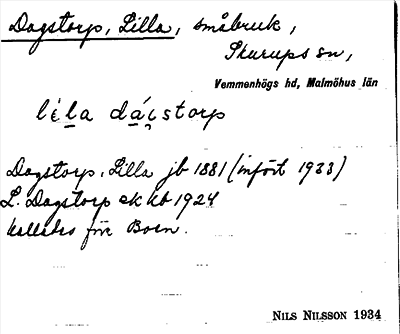 Dagstorp, Lilla, småbruk,
Skurups sn,
Vemmenhögs hd, Malmöhus län
lila dácstorp
Dagstorp, Lilla jb 1881 (infört 1933)
L. Dagstorp ek kb 1924
kallades förr Boen.
NILS NILSSON 1934